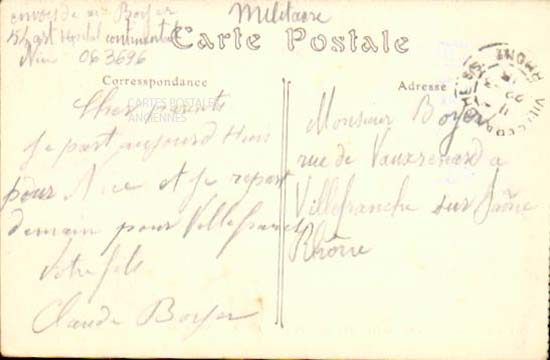 envois de mr Boyer
Militaere
hopital continental
Nice 063696
Carte Postale
Correspondance
Adresse
CARTES POSTALES
ANCIENNES
Cher parents
Je part aujourd huis
pour Nice et je repart
demain pour Villefranche
Votre fils
Claude Boyer
Monsieur Boyer
rue de Vauxrenard a
Villefranche sur Saône
Rhône
RHONE